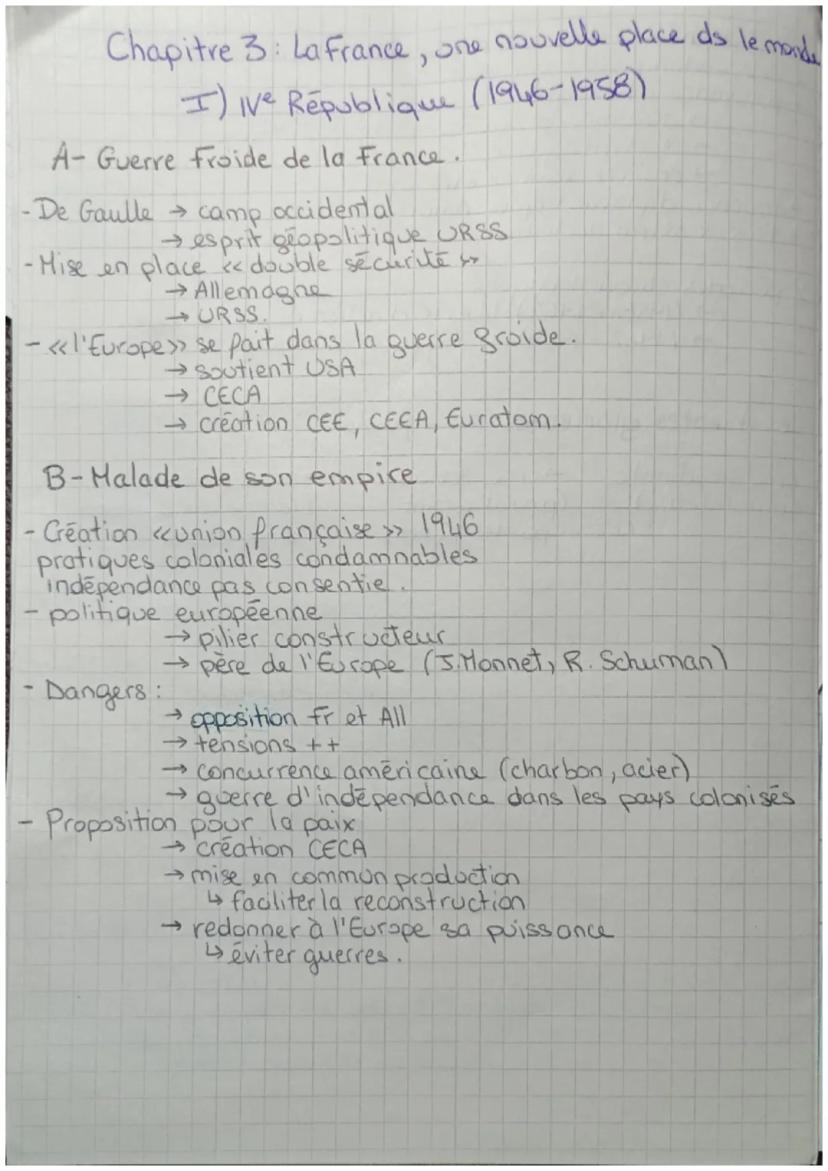 Chapitre 3 : La France, une nouvelle place ds le monde
I) IVe République (1946-1958)
A- Guerre froide de la France.
- De Gaulle → camp occidental
→ esprit géopolitique URSS
- Mise en place « double sécurité »
→ Allemagne
→ URSS.
- « l'Europe » se fait dans la guerre froide.
→ soutient USA
→ CECA
→ création CEE, CEEA, Euratom.
B- Malade de son empire
- Création « union française » 1946
pratiques coloniales condamnables
indépendance pas consentie.
- politique européenne
→ pilier constructeur
→ père de l'Europe (J.Monnet, R. Schuman)
- Dangers :
→ opposition fr et All
→ tensions ++
→ concurrence américaine (charbon, acier)
→ guerre d'indépendance dans les pays colonisés
- Proposition pour la paix
→ création CECA
→ mise en commun production
↳ faciliter la reconstruction
→ redonner à l'Europe sa puissance
↳ éviter guerres.